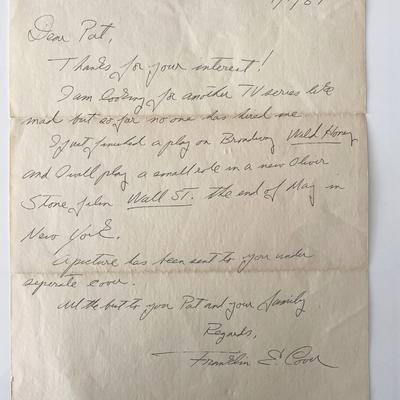 Dear Pat,
Thanks for your interest!
I am looking for another TV series like
mad but so far no one has hired me
I just finished a play on Broadway Wild Honey
and I will play a small role in a new Oliver
Stone film Wall St. the end of May in
New York.
A picture has been sent to you under
seperate cover.
All the best to you Pat and your family
Regards,
Franklin E. Cover